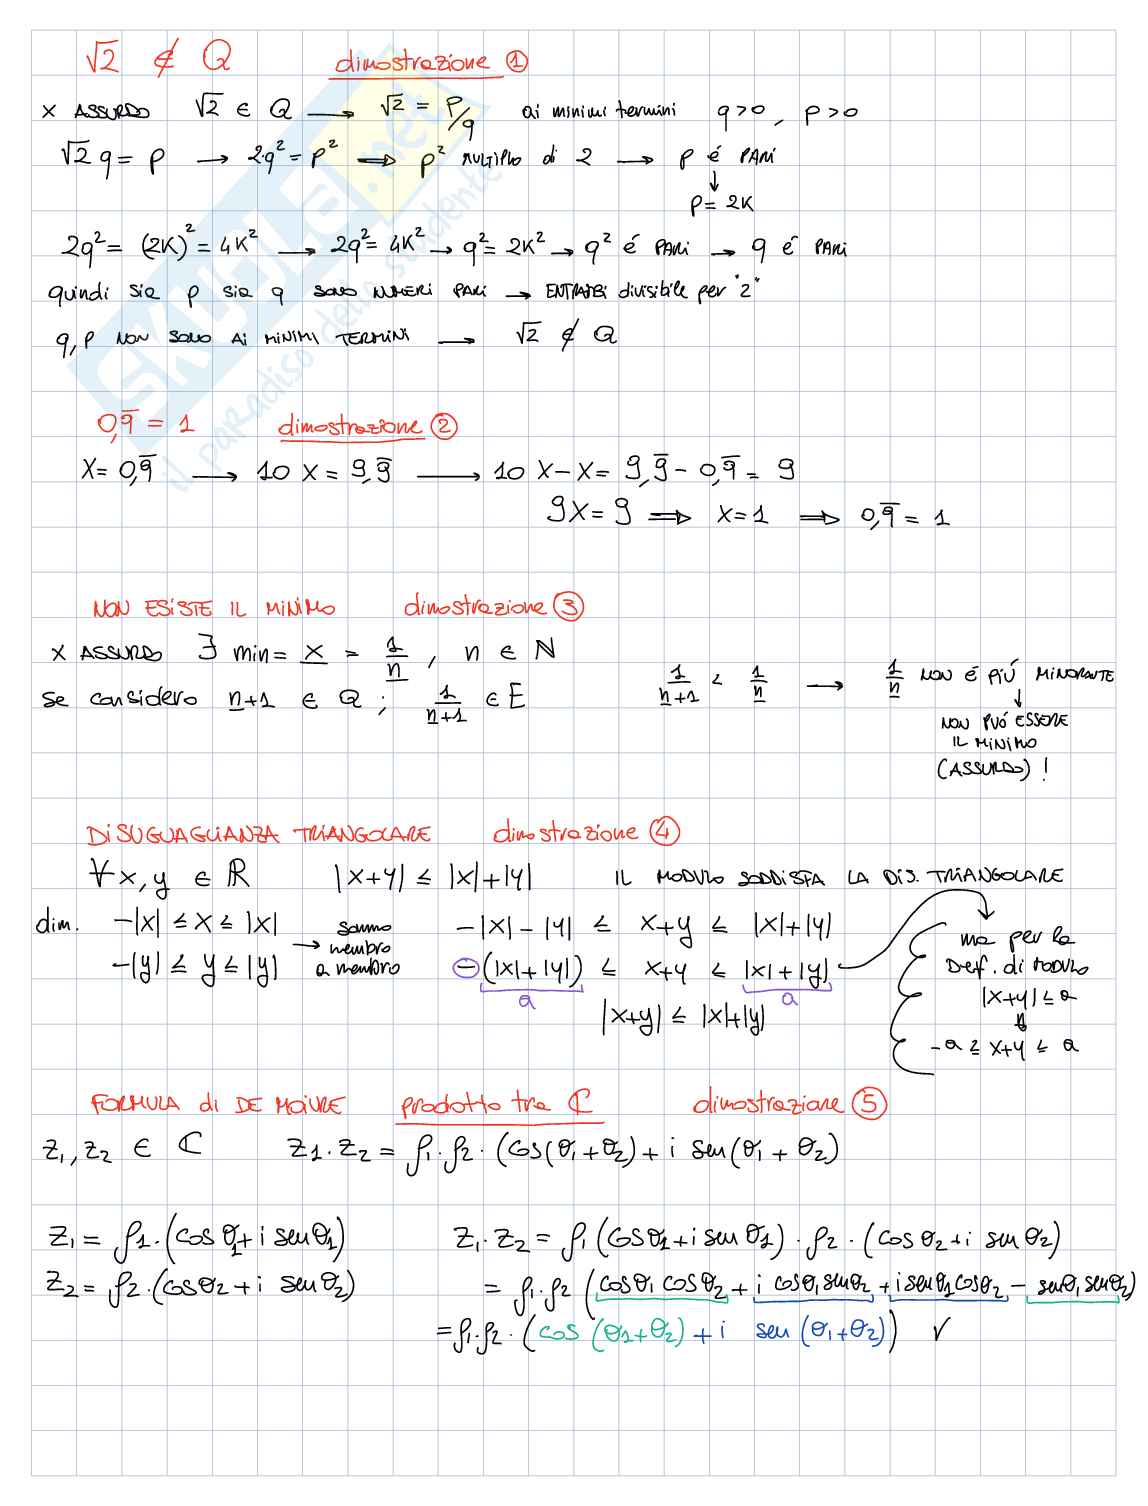 √2 ∉ Q dimostrazione ①
X ASSURDO √2 ∈ Q → √2 = P/q ai minimi termini q>0, p>0
√2 q = p → 2·q² = p² ⟹ p² MULTIPLO di 2 → p é PARI
↓
p = 2K
2q² = (2K)² = 4K² → 2q² = 4K² → q² = 2K² → q² é PARI → q é PARI
quindi sia p sia q SONO NUMERI PARI → ENTRAMBI divisibile per "2"
q, p NON SONO AI MINIMI TERMINI → √2 ∉ Q
0,9̅ = 1 dimostrazione ②
X = 0,9̅ → 10 X = 9,9̅ → 10 X - X = 9,9̅ - 0,9̅ = 9
9X = 9 ⟹ X = 1 ⟹ 0,9̅ = 1
NON ESISTE IL MINIMO dimostrazione ③
X ASSURDO ∃ min = x = 1/n, n ∈ N
se considero n+1 ∈ Q ; 1/(n+1) ∈ E 1/(n+1) < 1/n → 1/n NON É PIÚ MINORANTE
↓
NON PUÓ ESSERE
IL MINIMO
(ASSURDO) !
DISUGUAGLIANZA TRIANGOLARE dimostrazione ④
∀ x, y ∈ R |x+y| ≤ |x|+|y| IL MODULO SODDISFA LA DIS. TRIANGOLARE
dim. -|x| ≤ x ≤ |x|
-|y| ≤ y ≤ |y|
→ sommo
membro
a membro
-|x| - |y| ≤ x+y ≤ |x|+|y|
-(|x|+|y|) ≤ x+y ≤ |x|+|y|
a a
|x+y| ≤ |x|+|y|
ma per la
Def. di MODULO
|x+y| ≤ a
⇕
-a ≥ x+y ≤ a
FORMULA di DE MOIVRE prodotto tra ℂ dimostrazione ⑤
z₁, z₂ ∈ ℂ z1 · z2 = ρ₁·ρ₂ · (cos(θ₁+θ₂) + i sen(θ₁+θ₂)
z₁ = ρ1·(cos θ1 + i sen θ1) z₁·z₂ = ρ₁(cosθ1 + i sen θ1) · ρ₂ · (cosθ₂ + i sen θ₂)
z₂ = ρ₂·(cosθ₂ + i sen θ₂) = ρ₁·ρ₂ (cosθ₁ cosθ₂ + i cosθ₁senθ₂ + i senθ1cosθ₂ - senθ₁senθ₂)
= ρ₁·ρ₂ · (cos (θ1+θ₂) + i sen (θ₁+θ₂)) √
SKUOLA.net
il paradiso dello studente